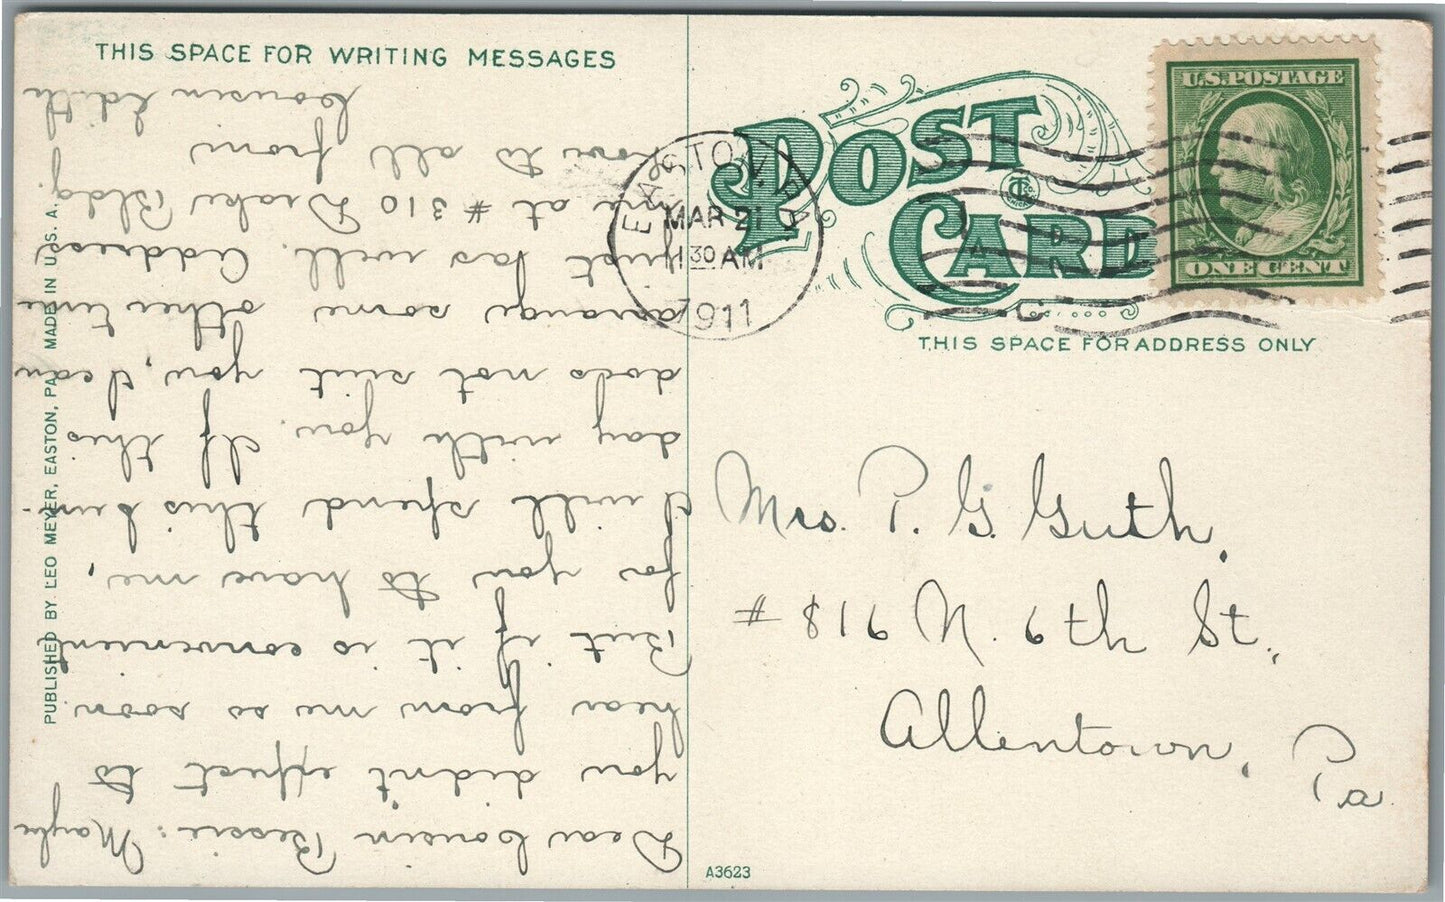 THIS SPACE FOR WRITING MESSAGES
Dear Cousin Bessie: Maybe
you didn't expect to
hear from me so soon.
But if it is convenient
for you to have me,
I will spend this Sun-
day with you. If this
does not suit you, I can
arrange some other time
just as well. Address
me at #310 Drake Bldg.
Love to all from
Cousin Edith
PUBLISHED BY LEO MEYER, EASTON, PA. MADE IN U.S.A.
POST CARD
EASTON, PA.
MAR 21
1 30 AM
1911
U.S. POSTAGE
ONE CENT
THIS SPACE FOR ADDRESS ONLY
Mrs. P. G. Guth,
#816 N. 6th St.,
Allentown, Pa
A3623